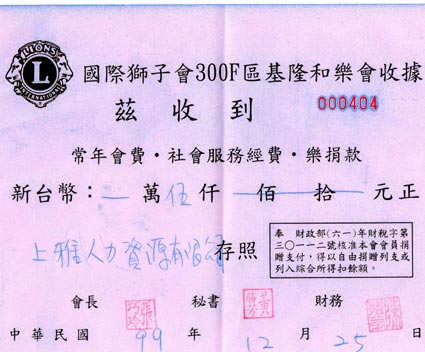 LIONS
L
INTERNATIONAL
國際獅子會300F區基隆和樂會收據
茲收到
000404
常年會費·社會服務經費·樂捐款
新台幣：一萬伍仟 佰 拾 元正
奉 財政部(六一)年財稅字第
三〇一一二號核准本會會員捐
贈支付，得以自由捐贈列支或
列入綜合所得扣餘額。
上雅人力資源有限公司 存照
會長 秘書 財務
中華民國 99 年 12 月 25 日